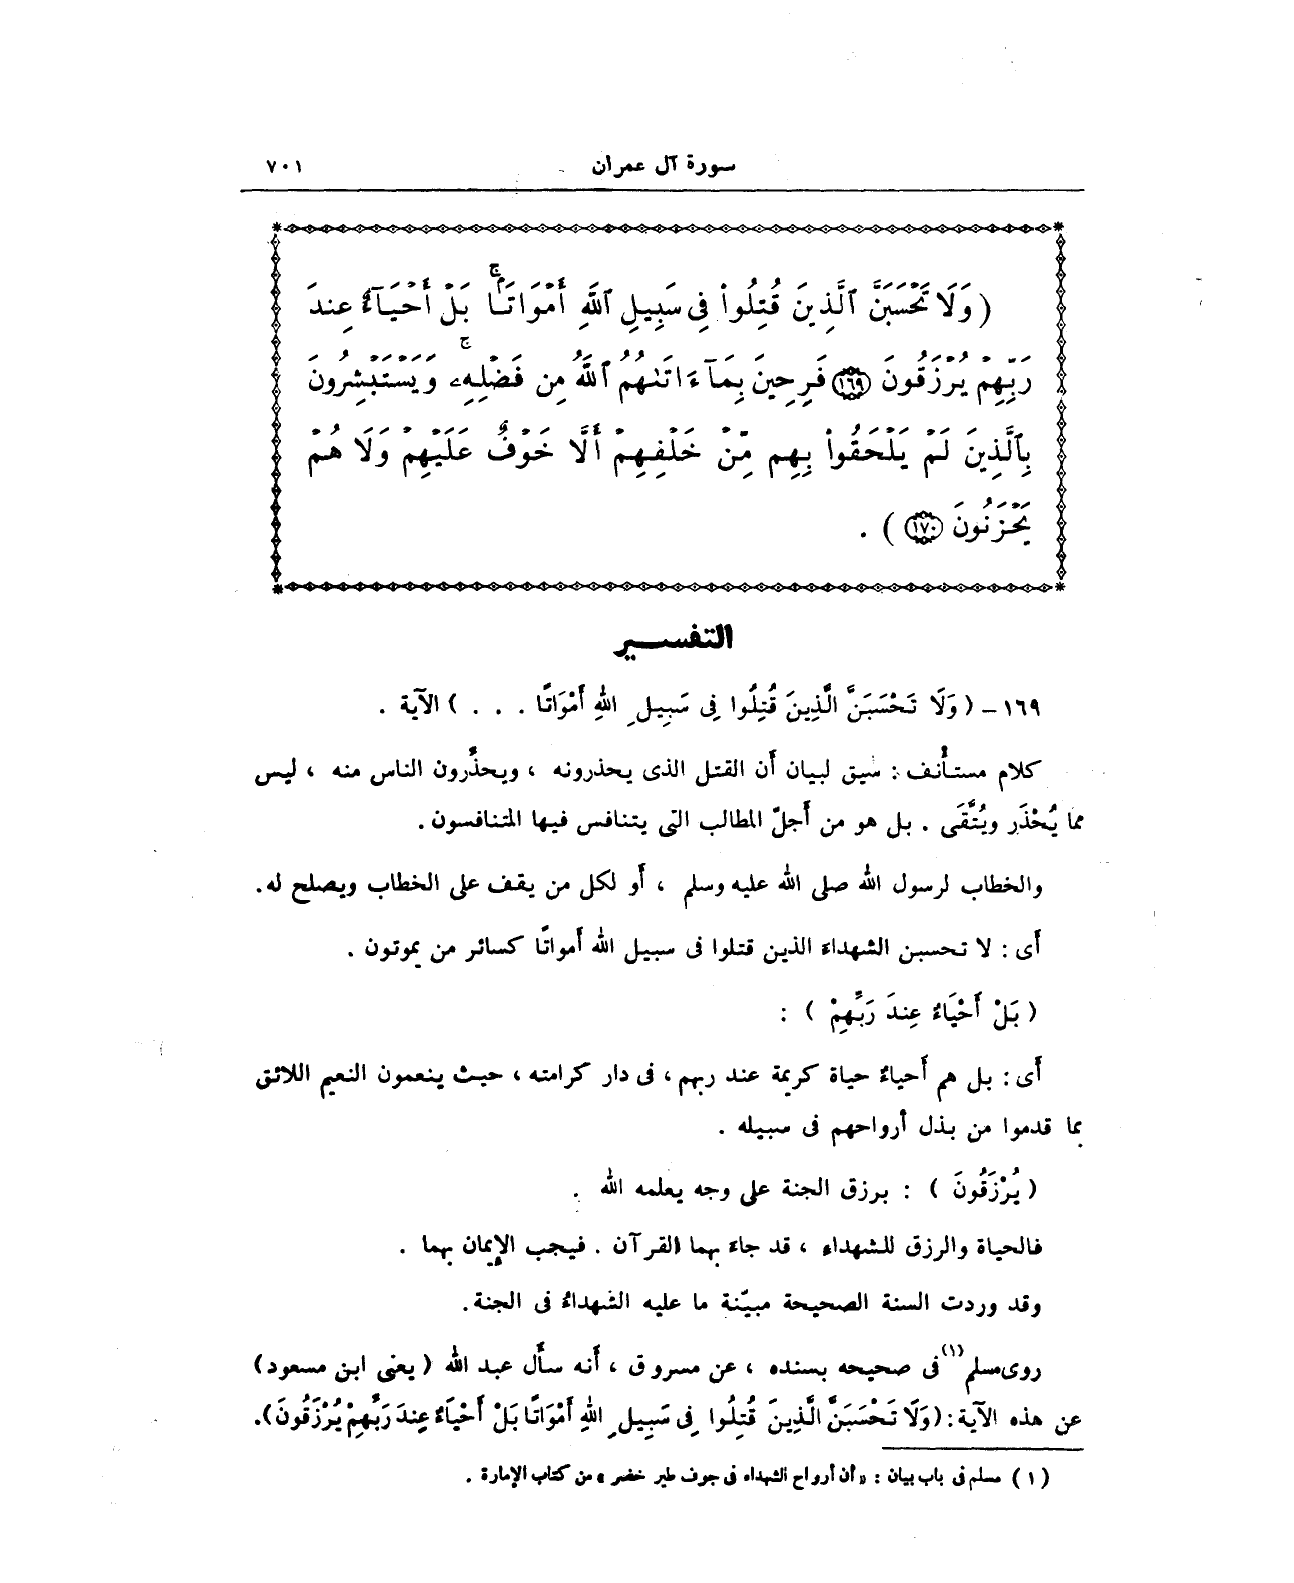 سورة آل عمران ٧٠١
( وَلَا تَحْسَبَنَّ ٱلَّذِينَ قُتِلُوا۟ فِى سَبِيلِ ٱللَّهِ أَمْوَٰتَۢا ۚ بَلْ أَحْيَآءٌ عِندَ
رَبِّهِمْ يُرْزَقُونَ ﴿١٦٩﴾ فَرِحِينَ بِمَآ ءَاتَىٰهُمُ ٱللَّهُ مِن فَضْلِهِۦ ۚ وَيَسْتَبْشِرُونَ
بِٱلَّذِينَ لَمْ يَلْحَقُوا۟ بِهِم مِّنْ خَلْفِهِمْ أَلَّا خَوْفٌ عَلَيْهِمْ وَلَا هُمْ
يَحْزَنُونَ ﴿١٧٠﴾ ) .
التفسير
١٦٩ - ( وَلَا تَحْسَبَنَّ الَّذِينَ قُتِلُوا فِى سَبِيلِ اللهِ أَمْوَاتًا . . . ) الآية .
كلام مستأنف : سيق لبيان أن القتل الذى يحذرونه ، ويحذِّرون الناس منه ، ليس
مما يُحْذَر ويُتَّقَى . بل هو من أجلّ المطالب التى يتنافس فيها المتنافسون .
والخطاب لرسول الله صلى الله عليه وسلم ، أو لكل من يقف على الخطاب ويصلح له .
أى : لا تحسبن الشهداء الذين قتلوا فى سبيل الله أمواتًا كسائر من يموتون .
( بَلْ أَحْيَاءٌ عِندَ رَبِّهِمْ ) :
أى : بل هم أحياءٌ حياة كريمة عند ربهم ، فى دار كرامته ، حيث ينعمون النعيم اللائق
بما قدموا من بذل أرواحهم فى سبيله .
( يُرْزَقُونَ ) : برزق الجنة على وجه يعلمه الله .
فالحياة والرزق للشهداء ، قد جاءَ بهما القرآن . فيجب الإيمان بهما .
وقد وردت السنة الصحيحة مبيّنة ما عليه الشهداءُ فى الجنة .
روى مسلم (١) فى صحيحه بسنده ، عن مسروق ، أنه سأل عبد الله ( يعنى ابن مسعود )
عن هذه الآية : (وَلَا تَحْسَبَنَّ الَّذِينَ قُتِلُوا فِى سَبِيلِ اللهِ أَمْوَاتًا بَلْ أَحْيَاءٌ عِندَ رَبِّهِمْ يُرْزَقُونَ) .
( ١ ) مسلم فى باب بيان : « أن أرواح الشهداء فى جوف طير خضر » من كتاب الإمارة .